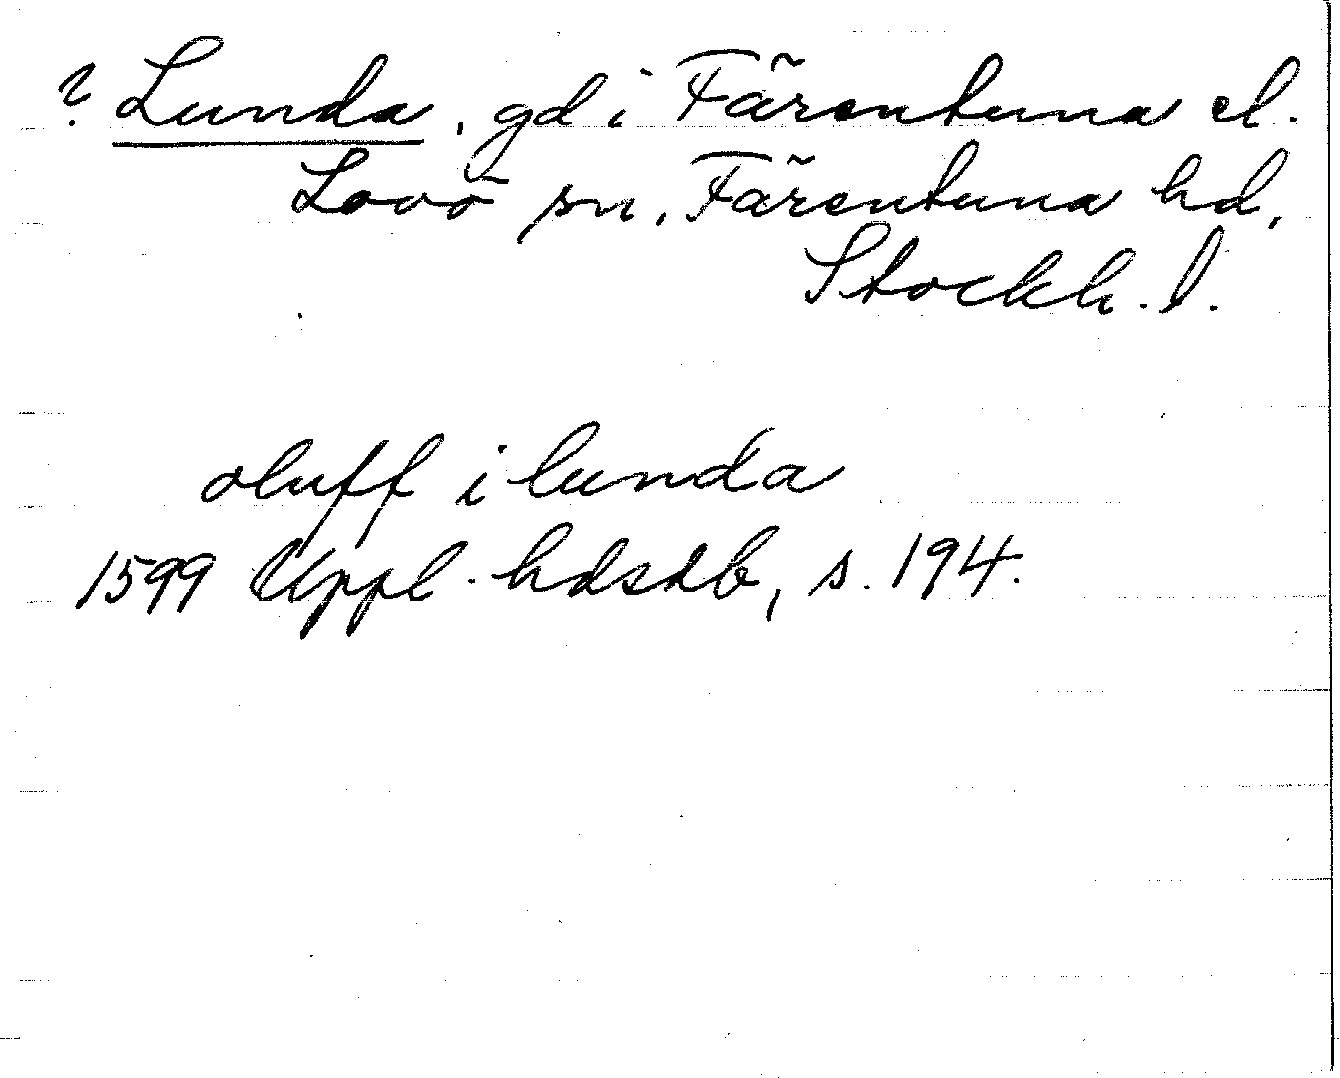 ? Lunda, gd i Färentuna el.
Lovö sn, Färentuna hd,
Stockh. l.
oluff i lunda
1599 Uppl. hdsdb, s. 194.